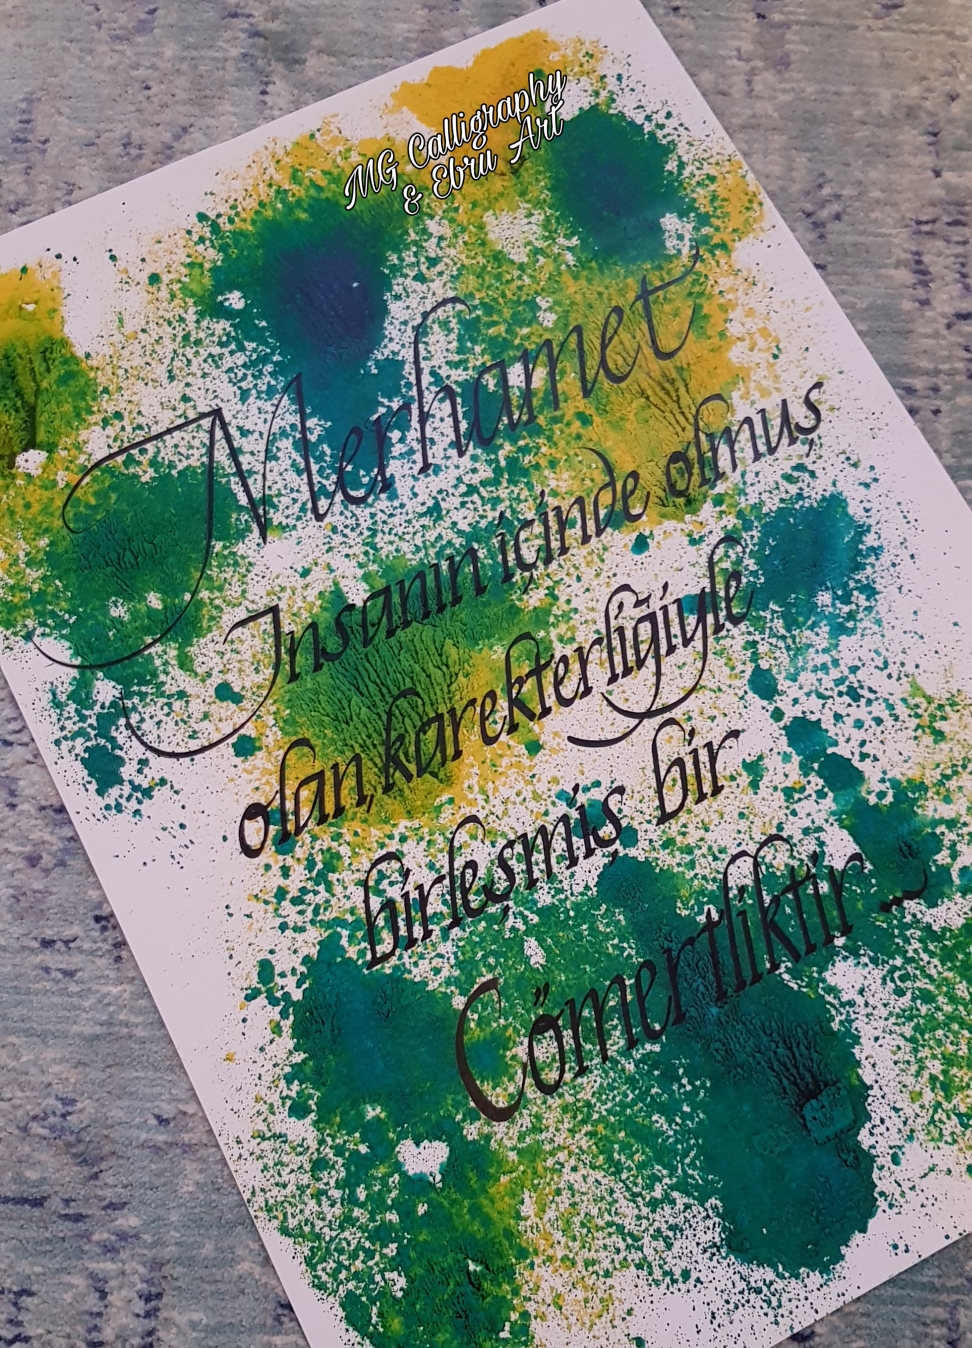 MG Calligraphy
& Ebru Art
Merhamet
İnsanın içinde olmuş
olan, karekterliğiyle
birleşmiş bir
Cömertliktir